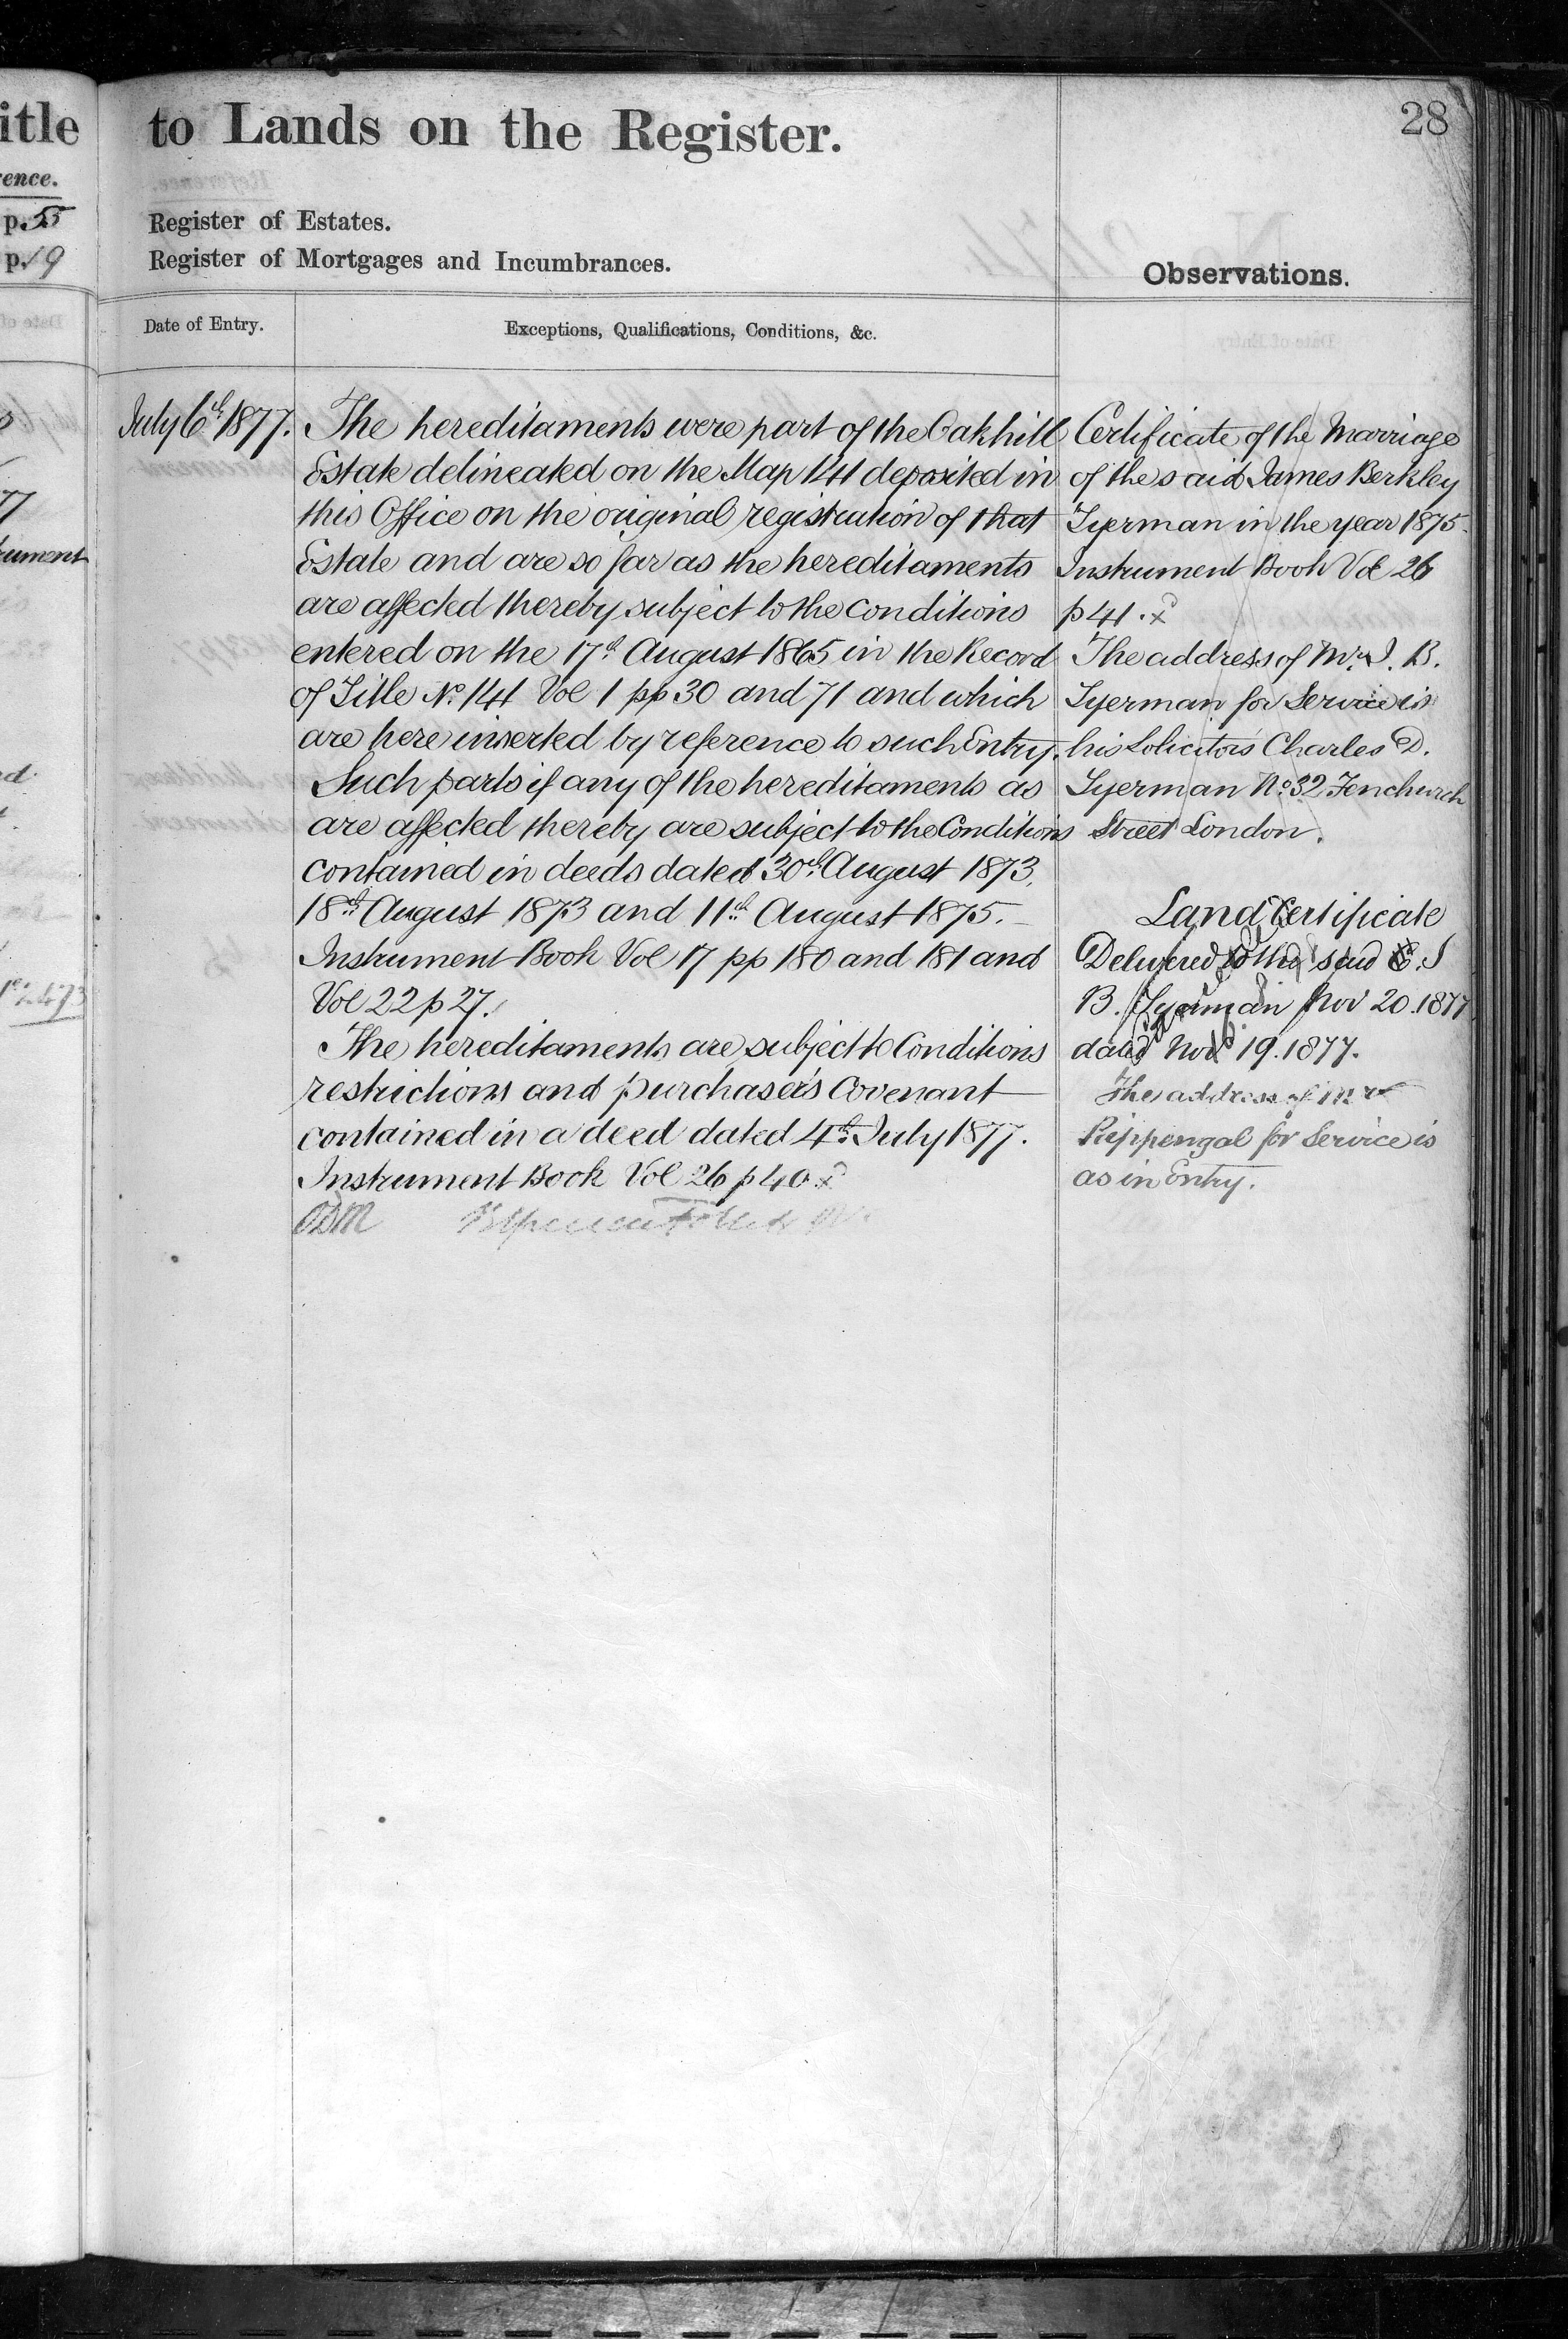 itle
ence.
p. 55
p. 19
77
rument
to Lands on the Register.
28
Register of Estates.
Register of Mortgages and Incumbrances.
Observations.
Date of Entry.
Exceptions, Qualifications, Conditions, &c.
July 6th 1877.
The hereditaments were part of the Oakhill
Estate delineated on the Map 141 deposited in
this Office on the original registration of that
Estate and are so far as the hereditaments
are affected thereby subject to the conditions
entered on the 17th August 1865 in the Record
of Title No. 141 Vol 1 pp 30 and 71 and which
are here inserted by reference to such Entry.
Such parts if any of the hereditaments as
are affected thereby are subject to the Conditions
contained in deeds dated 30th August 1873,
18th August 1873 and 11th August 1875.
Instrument Book Vol 17 pp 180 and 181 and
Vol 22 p 27.
The hereditaments are subject to Conditions
restrictions and purchaser's Covenant
contained in a deed dated 4th July 1877.
Instrument Book Vol 26 p 40
Certificate of the Marriage
of the said James Berkley
Tyerman in the year 1875.
Instrument Book Vol 26
p 41.
The address of Mr. J. B.
Tyerman for Service is
his Solicitors Charles D.
Tyerman No. 32 Fenchurch
Street London.
Land Certificate
Delivered to the said J
B. Tyerman Nov 20. 1877
dated Nov 19. 1877.
The address of Mr
Rippengal for Service is
as in Entry.